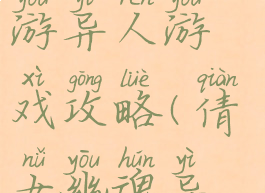 yóu yì rén yóu
游异人游
xì gōng lüè qiàn
戏攻略(倩
nǚ yōu hún yì
女幽魂异